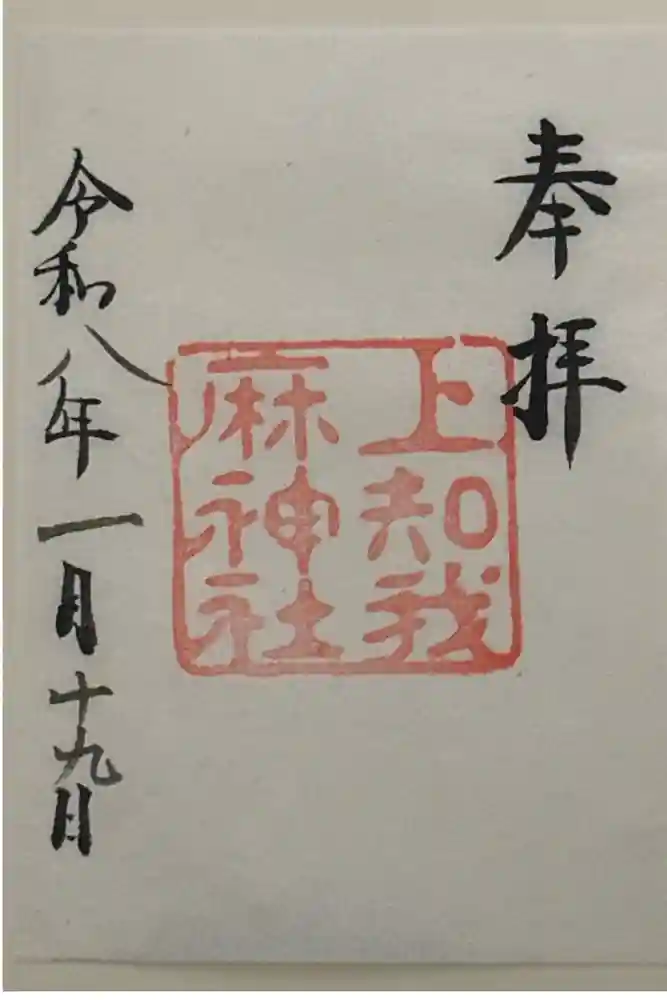 奉拝
上知我
麻神社
令和八年一月十九日